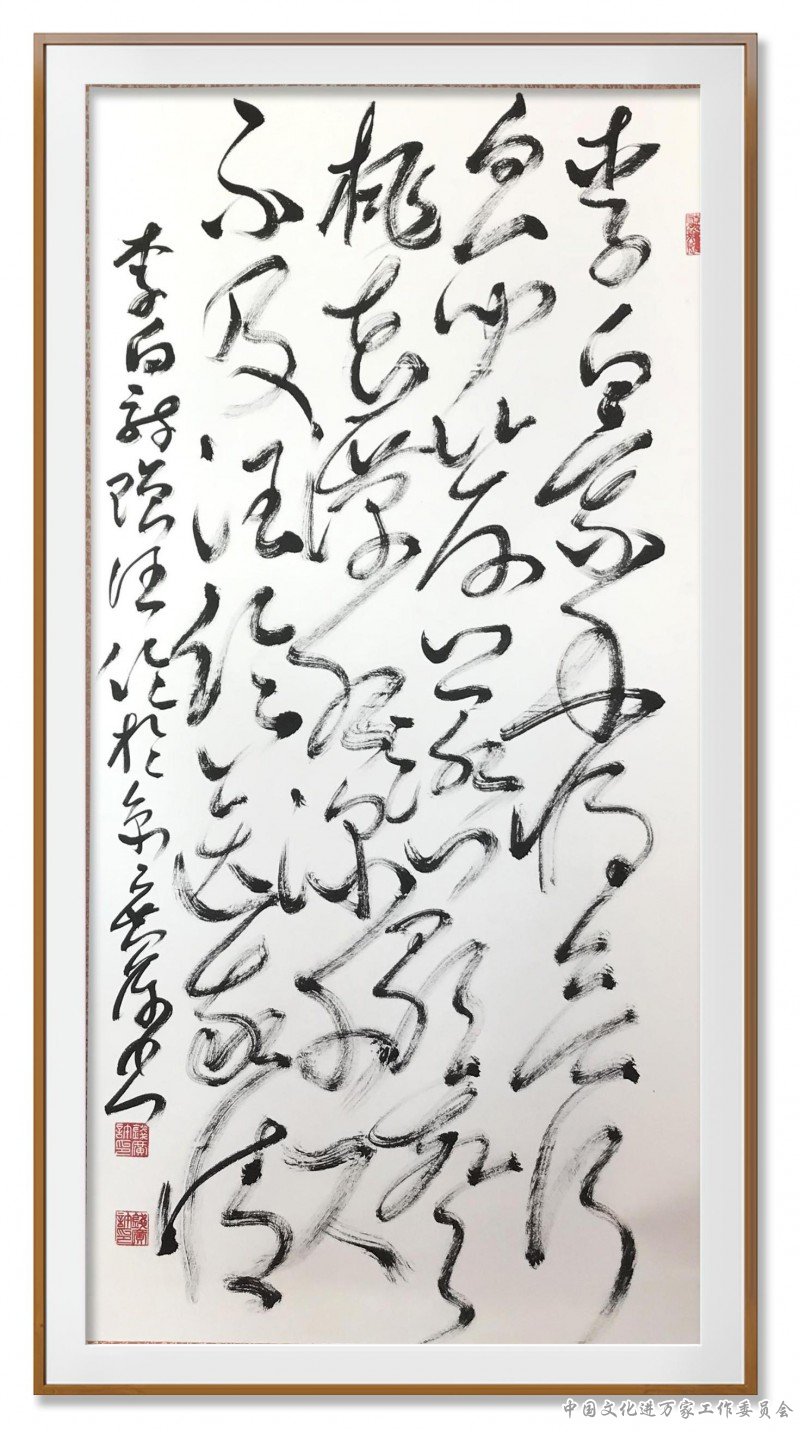 李白乘舟將欲行
忽聞岸上踏歌聲
桃花潭水深千尺
不及汪倫送我情
李白詩贈汪倫於京
中国文化进万家工作委员会